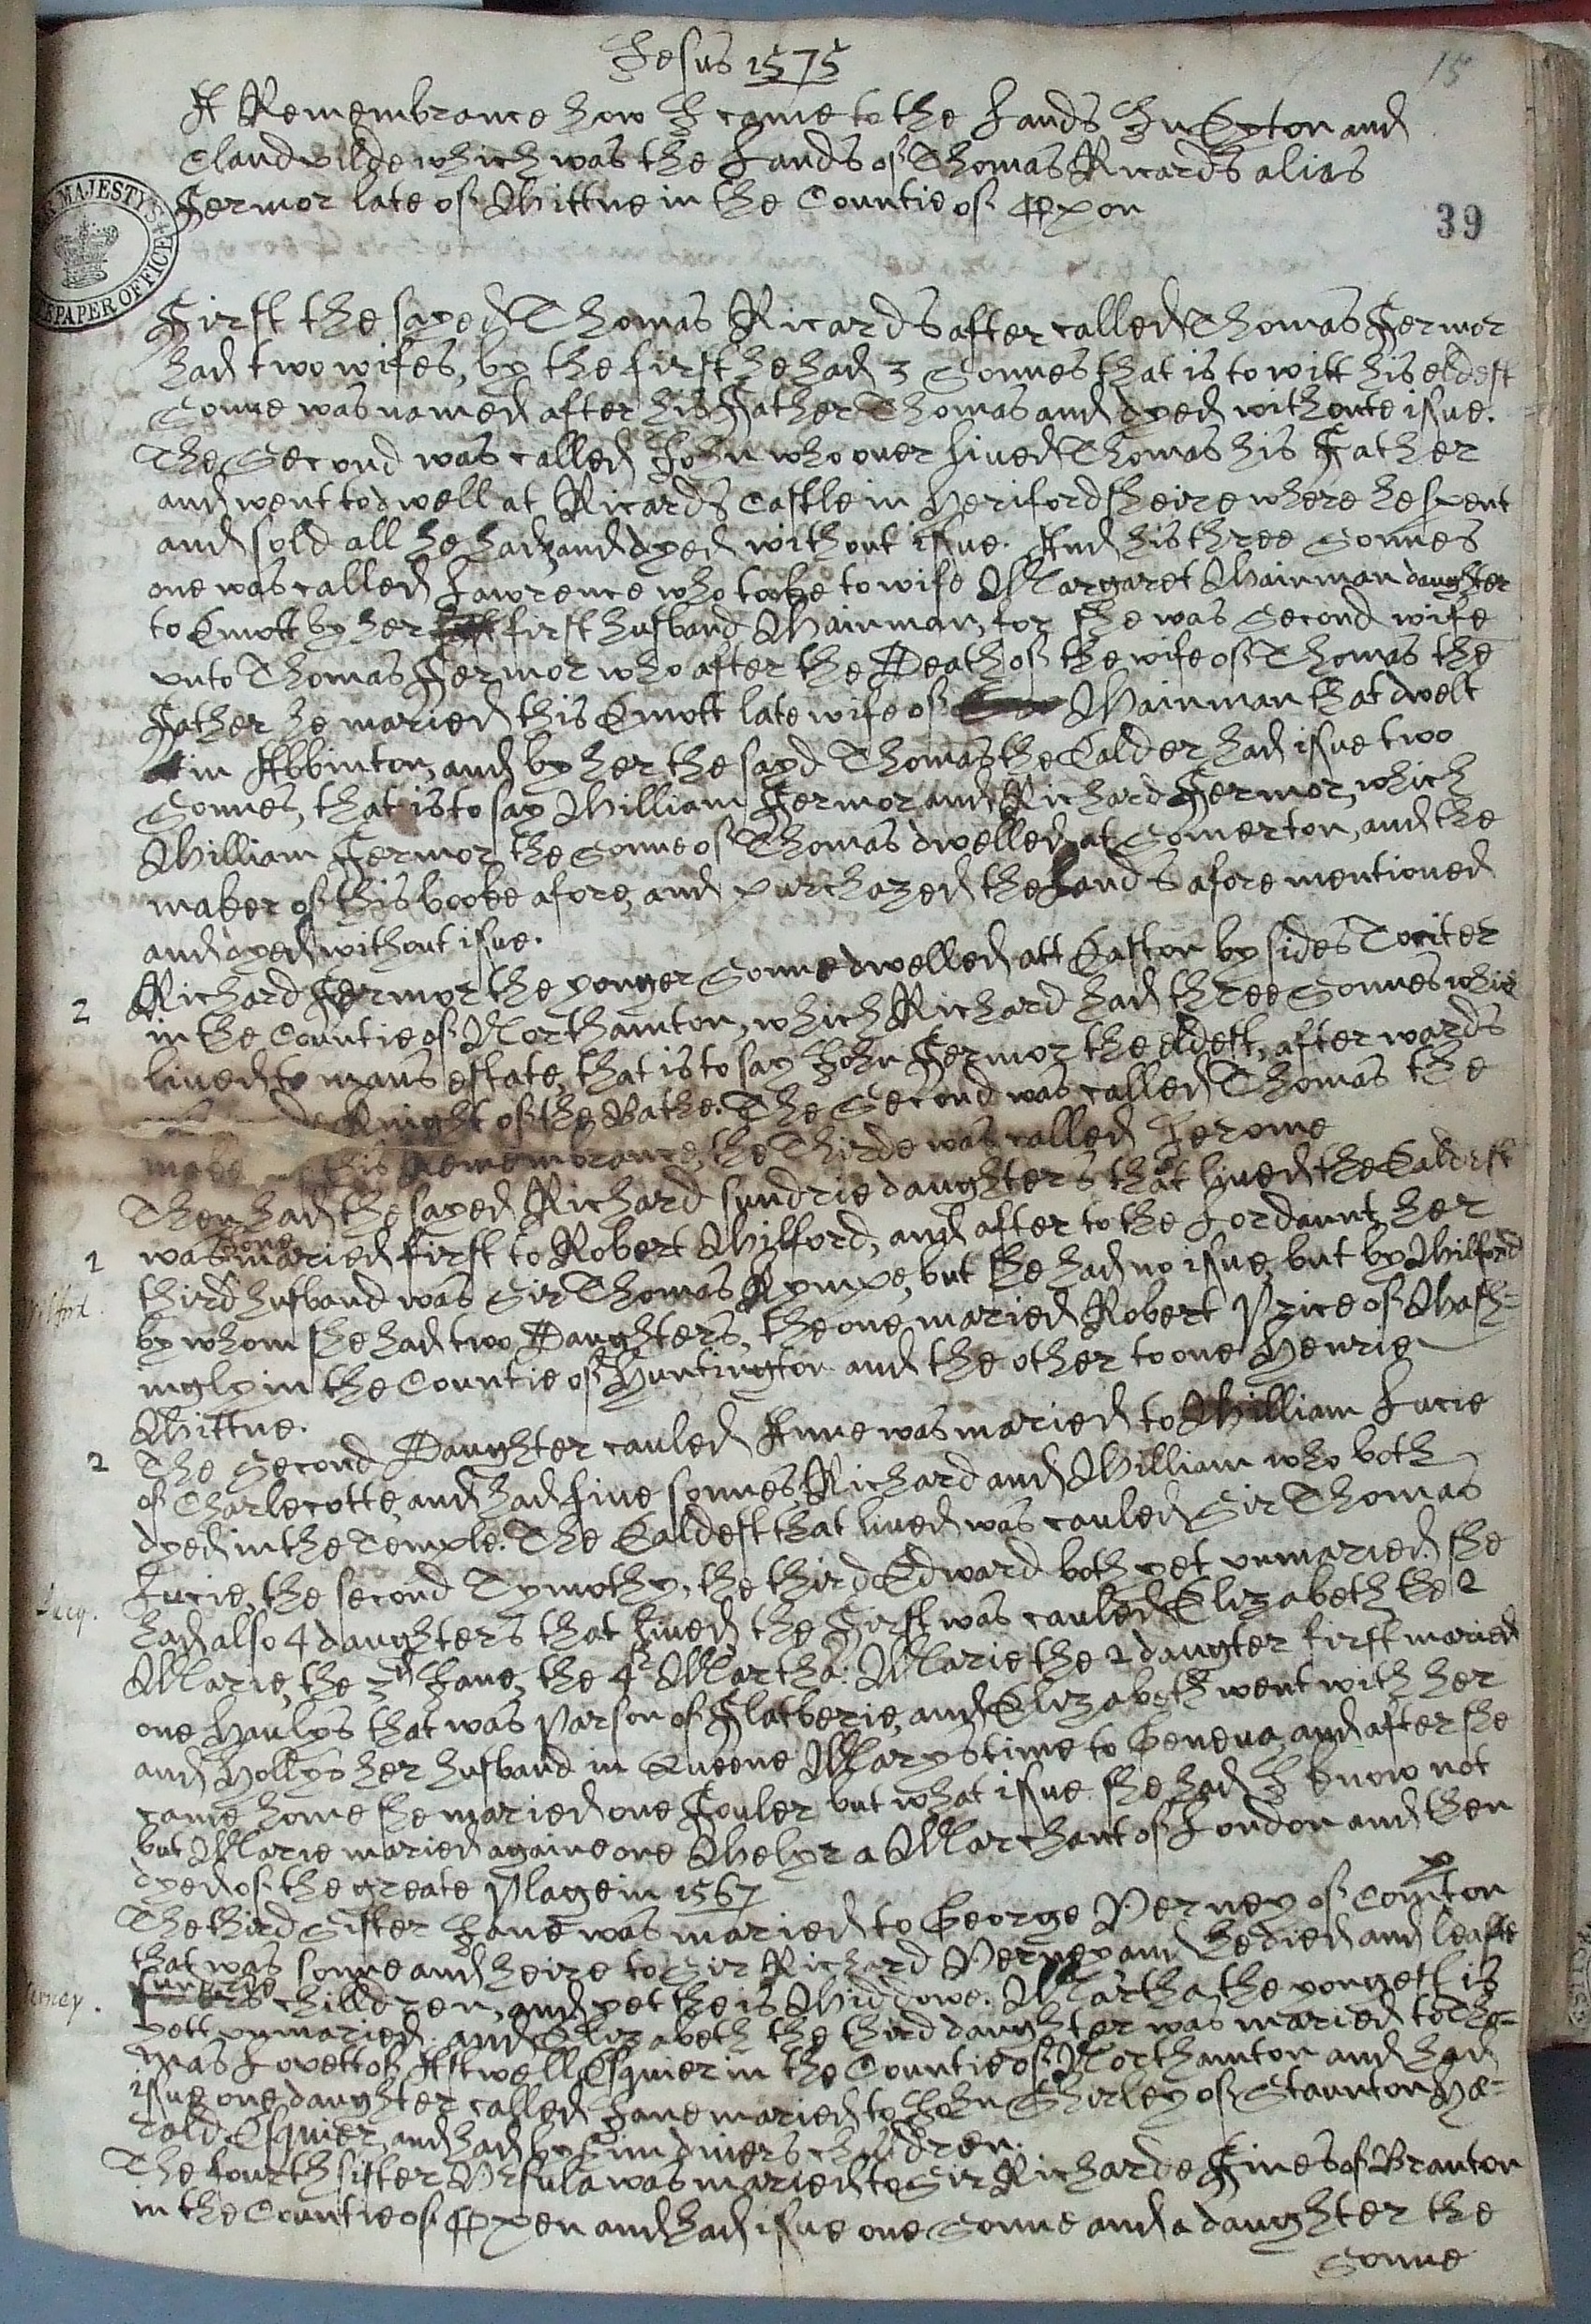 Jesus 1575
15
A Remembrance how I came to the Lands In Epton and
Claudvilde which was the Lands of Thomas Ricards alias
Fermor late of Wittne in the Countie of Oxon
MAJESTY'S
PAPER OFFICE
39
First the sayed Thomas Ricards after called Thomas Fermor
had two wifes, by the first he had 3 Sonnes that is to witt his eldest
Sonne was named after his Father Thomas and dyed withoute issue.
The Second was called John who over lived Thomas his Father
and went to dwell at Ricards Castle in Herifordsheire where he spent
and sold all he had, and dyed without issue. And his three Sonnes
one was called Lawrence who tooke to wife Margaret Wainman daughter
to Emott by her first husband Wainman, for she was Second wife
unto Thomas Fermor who after the Death of the wife of Thomas the
Father he maried this Emott late wife of Wainman that dwelt
in Abbinton, and by her the sayd Thomas the Ealder had issue two
Sonnes, that is to say William Fermor and Richard Fermor, which
William Fermor the Sonne of Thomas dwelled at Somerton, and the
maker of this booke afore, and purchazed the Lands afore mentioned
and dyed without issue.
2 Richard Fermor the yonger Sonne dwelled att Easton by sides Tociter
in the Countie of Northamton, which Richard had three Sonnes which
lived to mans estate, that is to say John Fermor the eldest, afterwards
Knight of the Bathe. The Second was called Thomas the
make this Remembrance, the Thirde was called Jerome
Then had the sayed Richard sundrie daughters that lived the Ealdest
one
1 was maried first to Robert Wilford, and after to the Lordaunt, her
Wilford.
third husband was Sir Thomas Kympe, but she had no issue, but by Wilford
by whom she had two Daughters, the one maried Robert Price of Wash=
ingly in the Countie of Huntington and the other to one Henrie
Wittne.
2 The Second Daughter cauled Anne was maried to William Lucie
of Charlecotte, and had five sonnes, Richard and William who both
dyed in the Temple. The Ealdest that lived was cauled Sir Thomas
Lucie, the second Tymothy, the third Edward both yet unmaried. she
Lucy.
had also 4 daughters that lived the First was cauled Elizabeth the 2
Marie, the 3th Jane, the 4th Martha: Marie the 2 daugter first maried
one Haulys that was Parson of Flatberie, and Elizabeth went with her
and Hollys her husband in Queene Marys time to Geneva, and after she
came home she maried one Fouler but what issue she had I know not
but Marie maried againe one Whelyr a Marchant of London and then
dyed of the greate Plage in 1567
The third Sister Jane was maried to George Verney of Comton
p
that was sonne and heire to Sir Richard Verney and he died and leafte
sunderie
Verney.
chilldren, and yet she is Widdowe. Martha the yongest is
yett unmaried. and Elizabeth the third daughter was maried to Tho=
mas Lovett of Astwell Esquier in the Countie of Northamton and had
issue one daughter called Jane maried to John Shirley of Staunton Ha=
rald Esquier, and had by him divers children.
The fourth sister Ursula was maried to Sir Richarde Fines of Branton
in the Countie of Oxxen and had issue one Sonne and a daughter the
Sonne